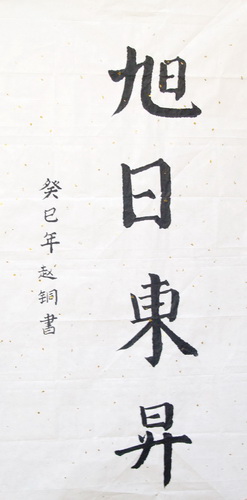 旭日東昇
癸巳年赵铜書